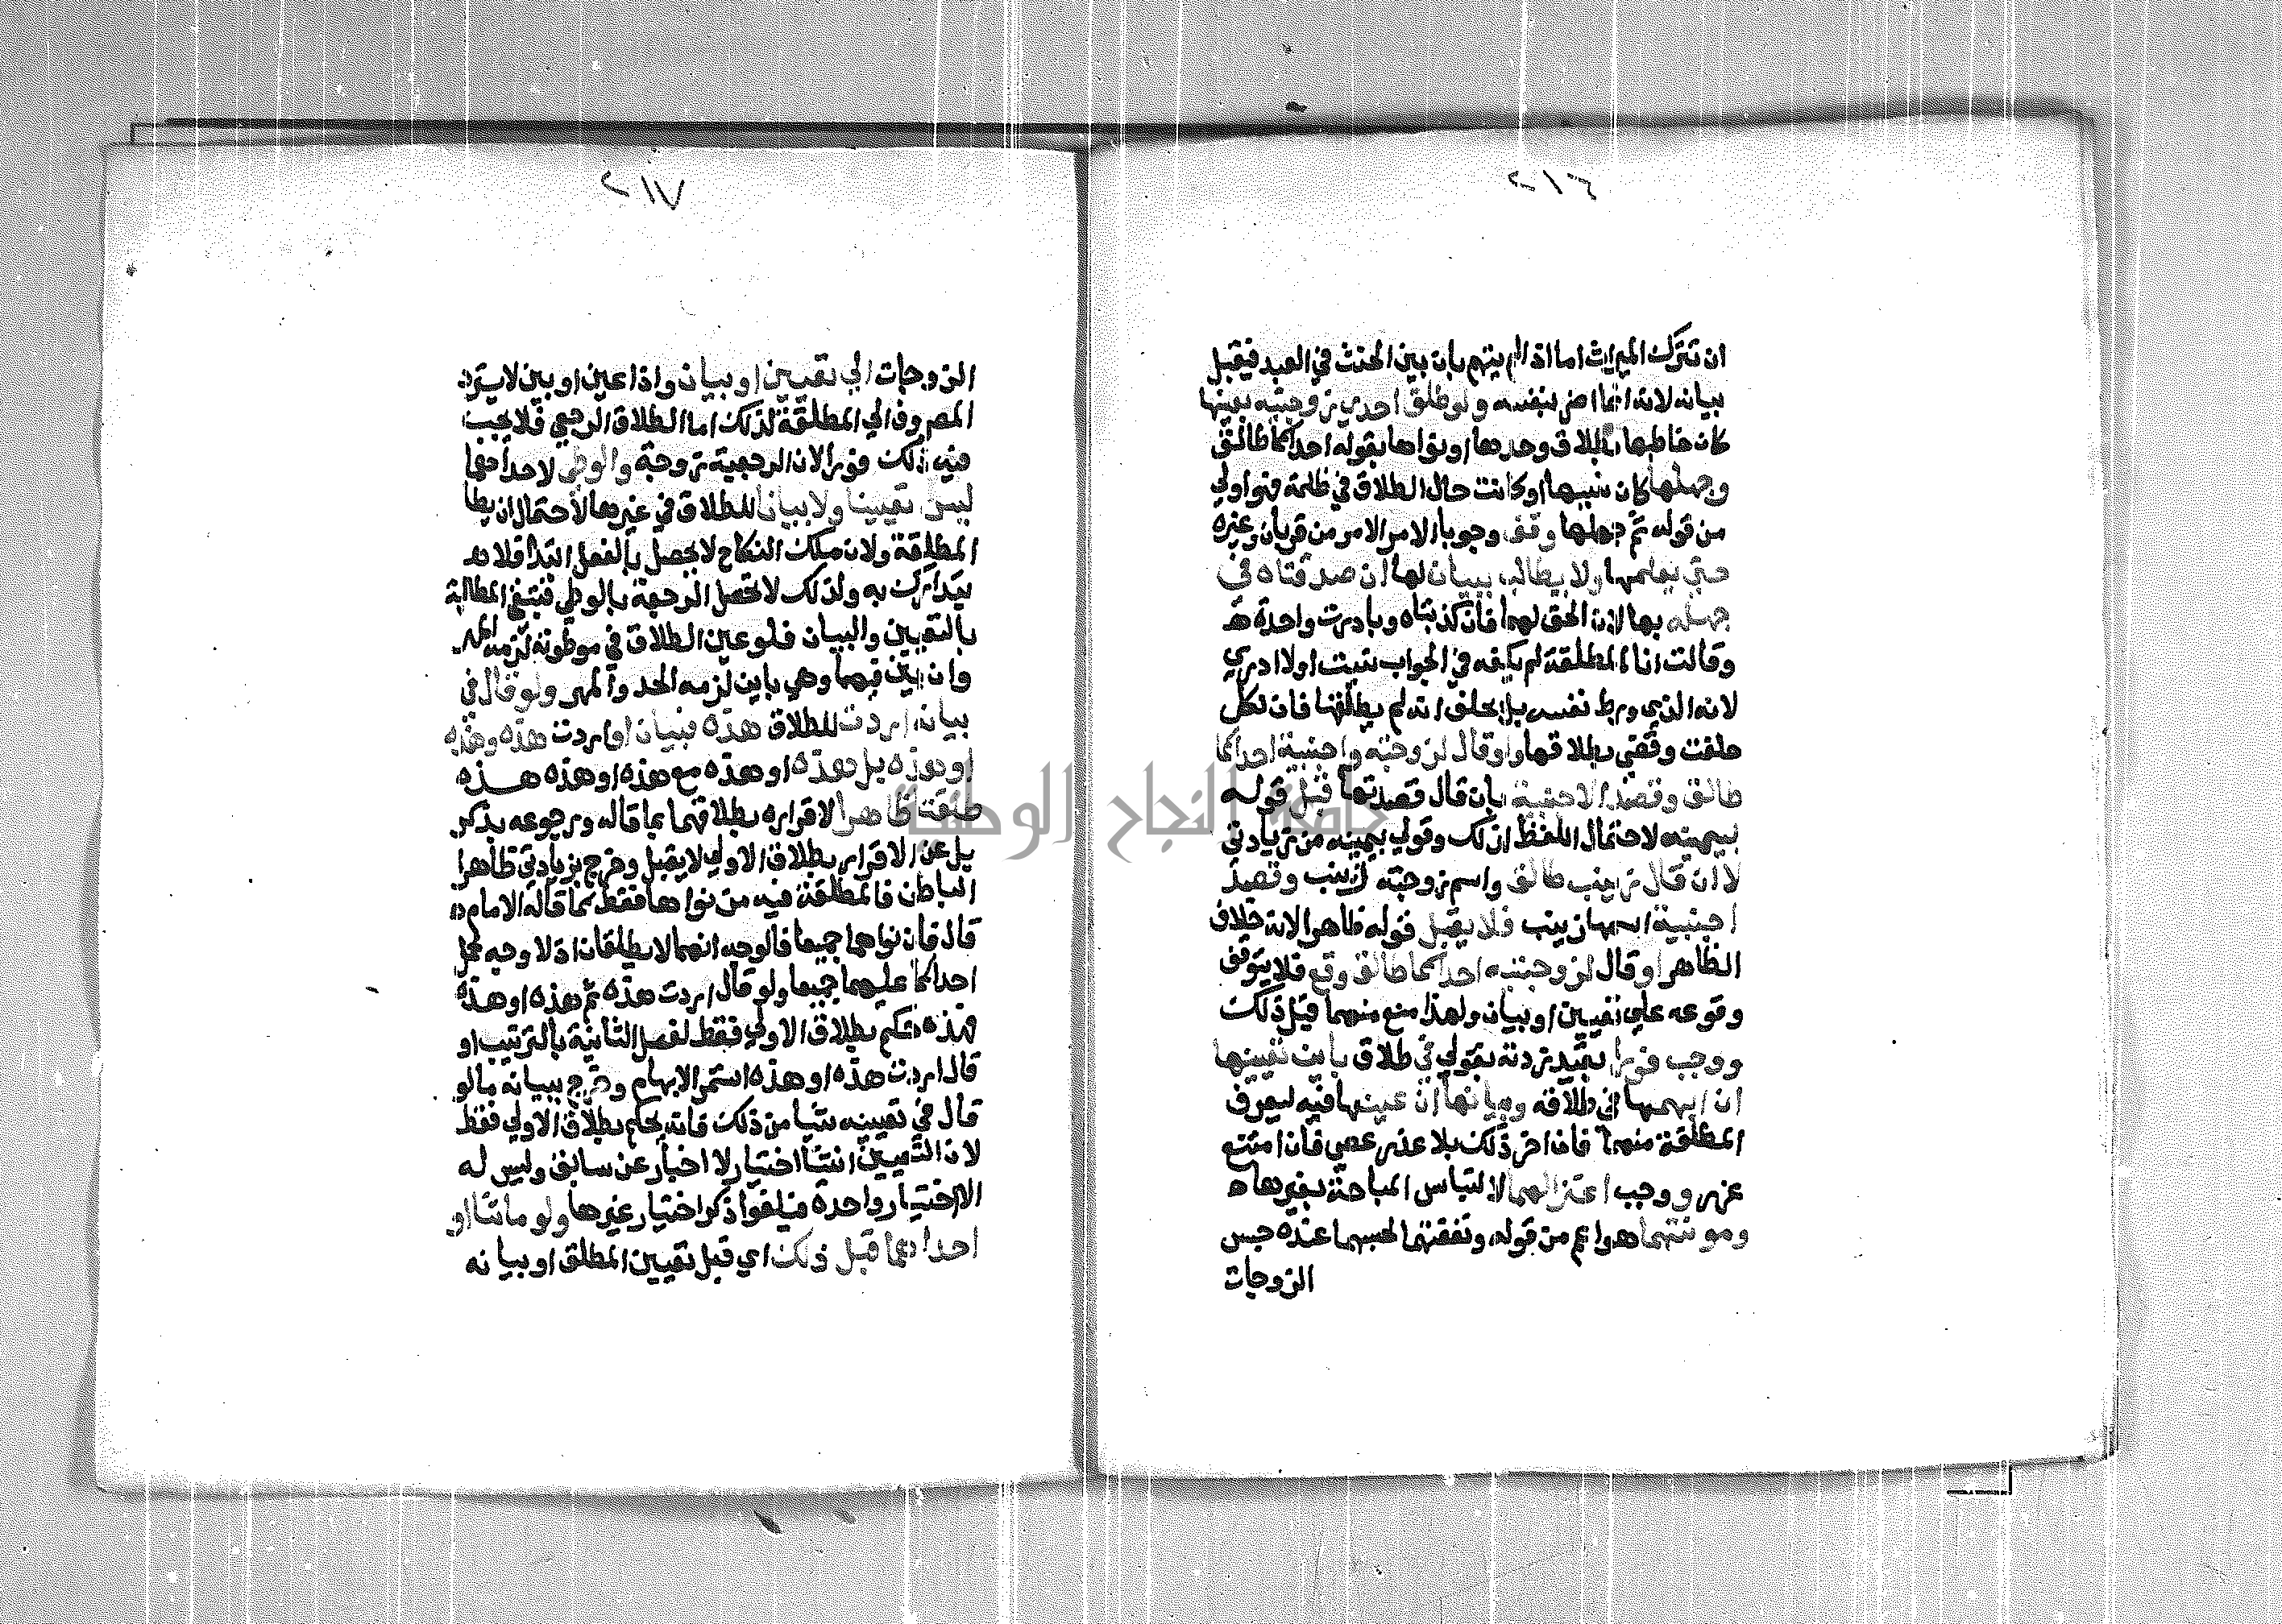 ٢١٦
ان تترك الميراث اما اذا لم يتهم بان بين الحنث في العبد فيقبل
بيانه لانه انما اضر بنفسه ولو طلق احدي زوجتيه بعينها
كان خاطبها بطلاق وحدها او نواها بقوله احداكما طالق
وجهلها كان نسيها او كانت حال الطلاق في ظلمة فهو اولي
من قوله ثم جهلها وقف وجوبا الامر الامر من قربان وغيره
حتي يعلمها ولا يطالب ببيان لها ان صدقتاه في
جهله بها لان الحق لهما فان كذبتاه وبادرت واحدة هـ
وقالت انا المطلقة لم يكفه في الجواب نسيت او لا ادري
لانه الذي ورط نفسه بل يحلف انه لم يطلقها فان نكل
حلفت وقضي بطلاقها ولو قال لزوجته واجنبية احداكما
طالق وقصد الاجنبية بان قال قصدتها قبل قوله
بيمينه لاحتمال اللفظ لذلك وقولي بيمينه من زيادتي
لا ان قال زينب طالق واسم زوجته زينب وقصد
اجنبية اسمها زينب فلا يقبل قوله ظاهرا لانه خلاف
الظاهر او قال لزوجتيه احداكما طالق وقع فلا يتوقف
وقوعه علي تعيين او بيان ولهذا منع منهما قبل ذلك
ووجب فورا بقيد زدته بقولي في طلاق باين تعيينها
ان ابهمها في طلاقه وبيانها ان عينها فيه ليعرف
المطلقة منهما فان اخر ذلك بلا عذر عصي فان امتنع
عزر ووجب اعتزالهما لالتباس المباحة بغيرها هـ
ومونتهما هو اعم من قوله ونفقتهما لحبسهما عنده حبس
الزوجات
٢١٧
الزوجات الي تعيين او بيان واذا عين او بين لا يسترد
المصروف الي المطلقة لذلك اما الطلاق الرجعي فلا يجب
فيه ذلك فورا لان الرجعية زوجة والوطي لاحداهما
ليس تعيينا ولا بيانا للطلاق في غيرها لاحتمال ان يطا
المطلقة ولان ملك النكاح لا يحصل بالفعل ابتدا فلا
يتدارك به ولذلك لا تحصل الرجعة بالوطي فتبقي المطالبة
بالتعيين والبيان فلو عين الطلاق في موطوته لزمه المهر
وان بين فيهما وهي باين لزمه الحد والمهر ولو قال في
بيانه اردت للطلاق هذه فبيان او اردت هذه وهذه
او هذه بل هذه او هذه مع هذه او هذه هـذه
طلقتا ظاهرا لاقراره بطلاقهما بما قاله ورجوعه بذكر
بل عن الاقرار بطلاق الاولي لا يقبل وخرج بزيادتي ظاهرا
الباطن فالمطلقة فيه من نواها فقط كما قاله الامام
قال فان نواهما جميعا فالوجه انهما لا يطلقان اذ لا وجه لحمل
احداكما عليهما جميعا ولو قال اردت هذه ثم هذه او هذه
فهذه حكم بطلاق الاولي فقط لفصل الثانية بالترتيب او
قال اردت هذه او هذه استمر الابهام وخرج ببيانه ما لو
قال في تعيينه شيا من ذلك فانه يحكم بطلاق الاولي فقط
لان التعيين انشا اختيار لا اخبار عن سابق وليس له
الا اختيار واحدة فيلغوا ذكر اختيار غيرها ولو ماتتا او
احداهما قبل ذلك اي قبل تعيين المطلق او بيانه
جامعة النجاح الوطنية